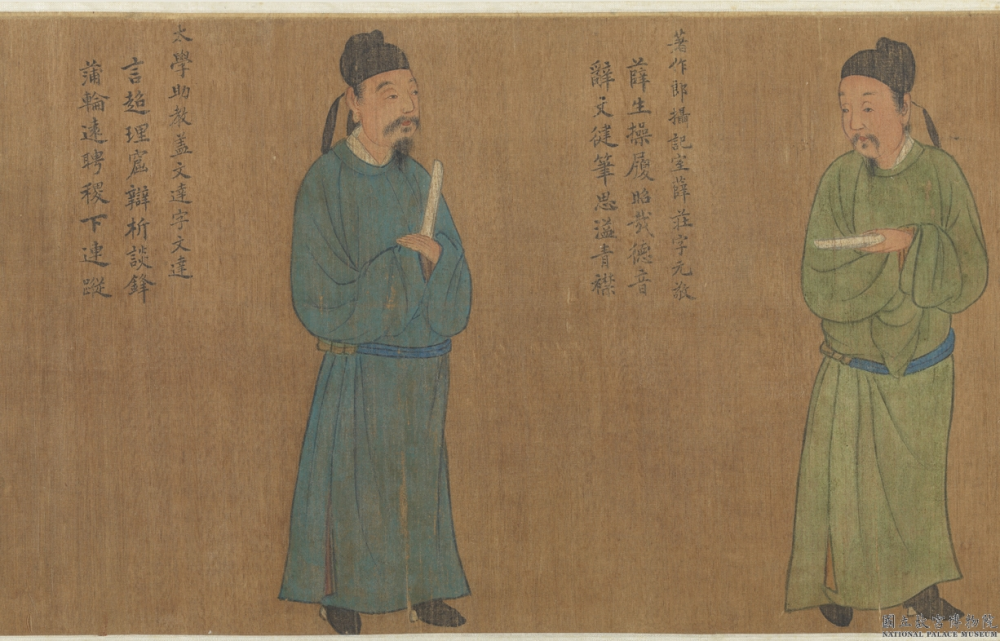 著作郎攝記室薛莊字元敬
薛生操履昭哉德音
辭文健筆思溢青襟
太學助教蓋文達字文達
言超理窟辯析談鋒
蒲輪遠聘稷下連蹤
國立故宮博物院
NATIONAL PALACE MUSEUM